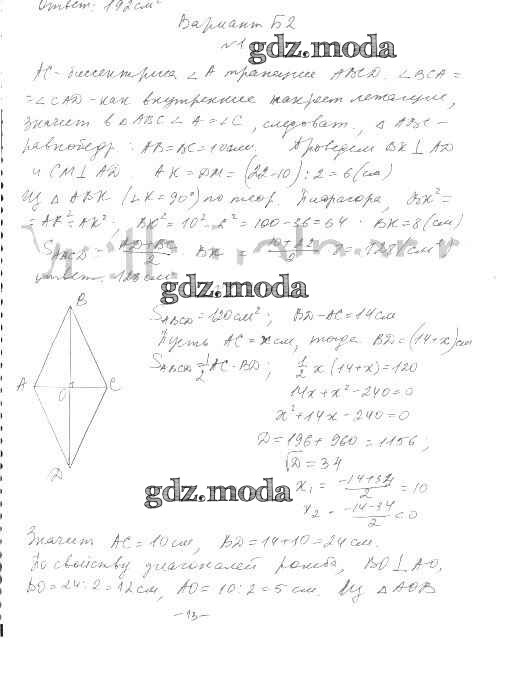 Ответ: 192 см²
Вариант Б2
№1
gdz.moda
AC - биссектриса ∠A трапеции ABCD. ∠BCA =
= ∠CAD - как внутренние накрест лежащие,
значит в △ABC ∠A = ∠C, следоват., △ABC -
равнобедр.: AB = BC = 10 см. Проведем BK ⊥ AD
и CM ⊥ AD. AK = DM = (22-10):2 = 6 (см)
Из △ABK (∠K = 90°) по теор. Пифагора, BK² =
= AB² - AK²; BK² = 10² - 6² = 100 - 36 = 64. BK = 8 (см)
S ABCD = AD+BC/2 · BK = 10+22/2 · 8 = 128 (см²)
Ответ: 128 см²
gdz.moda
S ABCD = 120 см²; BD - AC = 14 см
Пусть AC = x см, тогда BD = (14+x) см
S ABCD = 1/2 AC · BD; 1/2 x (14+x) = 120
14x + x² - 240 = 0
x² + 14x - 240 = 0
D = 196 + 960 = 1156;
√D = 34
x₁ = -14+34/2 = 10
x₂ = -14-34/2 < 0
B
A
O
C
D
gdz.moda
Значит AC = 10 см, BD = 14 + 10 = 24 см.
По свойству диагоналей ромба, BO ⊥ AO,
BO = 24:2 = 12 см, AO = 10:2 = 5 см. Из △AOB
-13-